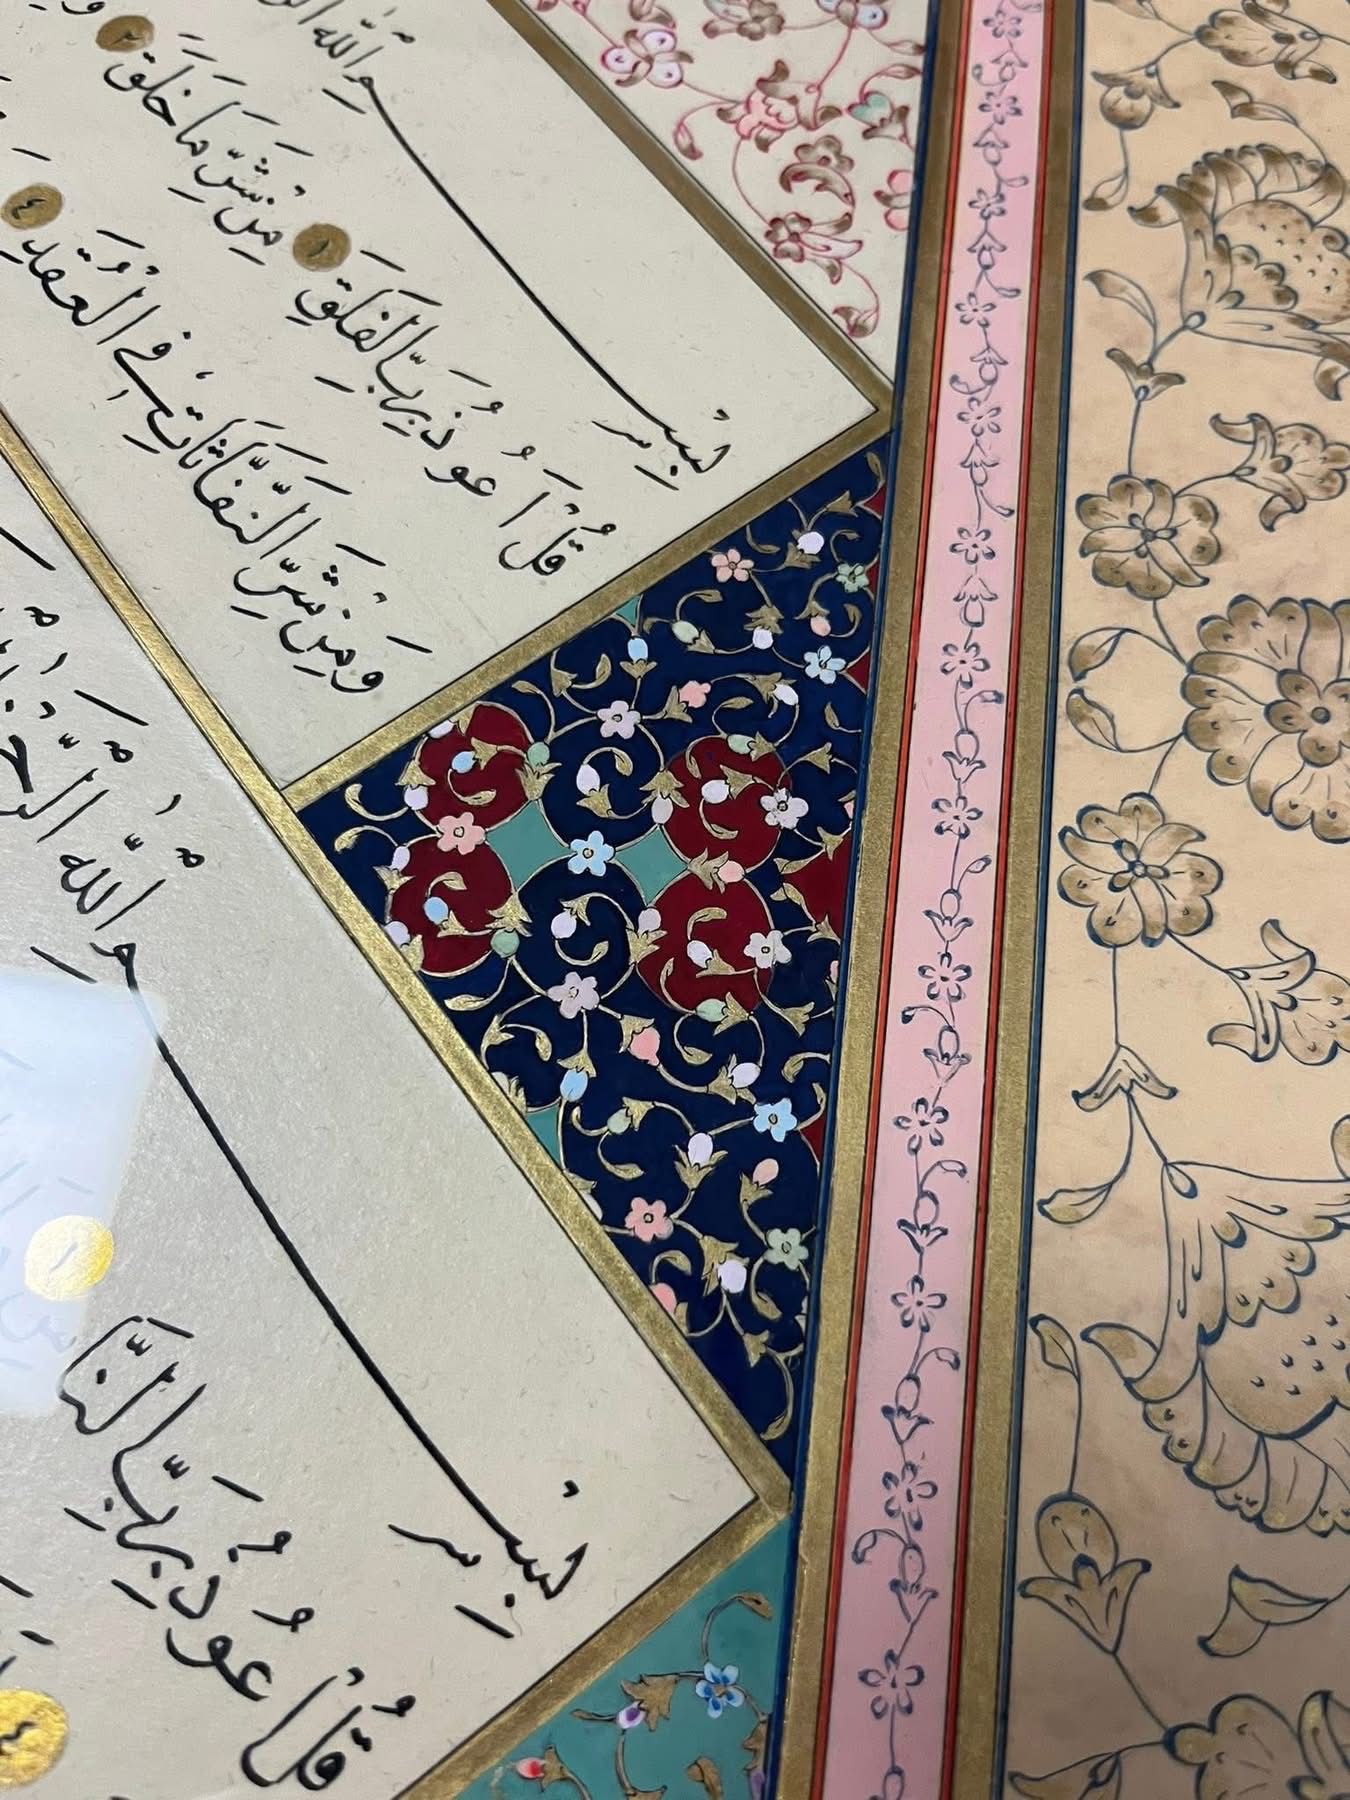 بِسْمِ اللهِ
قُلْ أَعُوذُ بِرَبِّ الْفَلَقِ ١ مِنْ شَرِّ مَا خَلَقَ ٢
وَمِنْ شَرِّ النَّفَّاثَاتِ فِي الْعُقَدِ ٤
بِسْمِ اللهِ الرَّحْمٰنِ
قُلْ أَعُوذُ بِرَبِّ النَّاسِ ١
٤